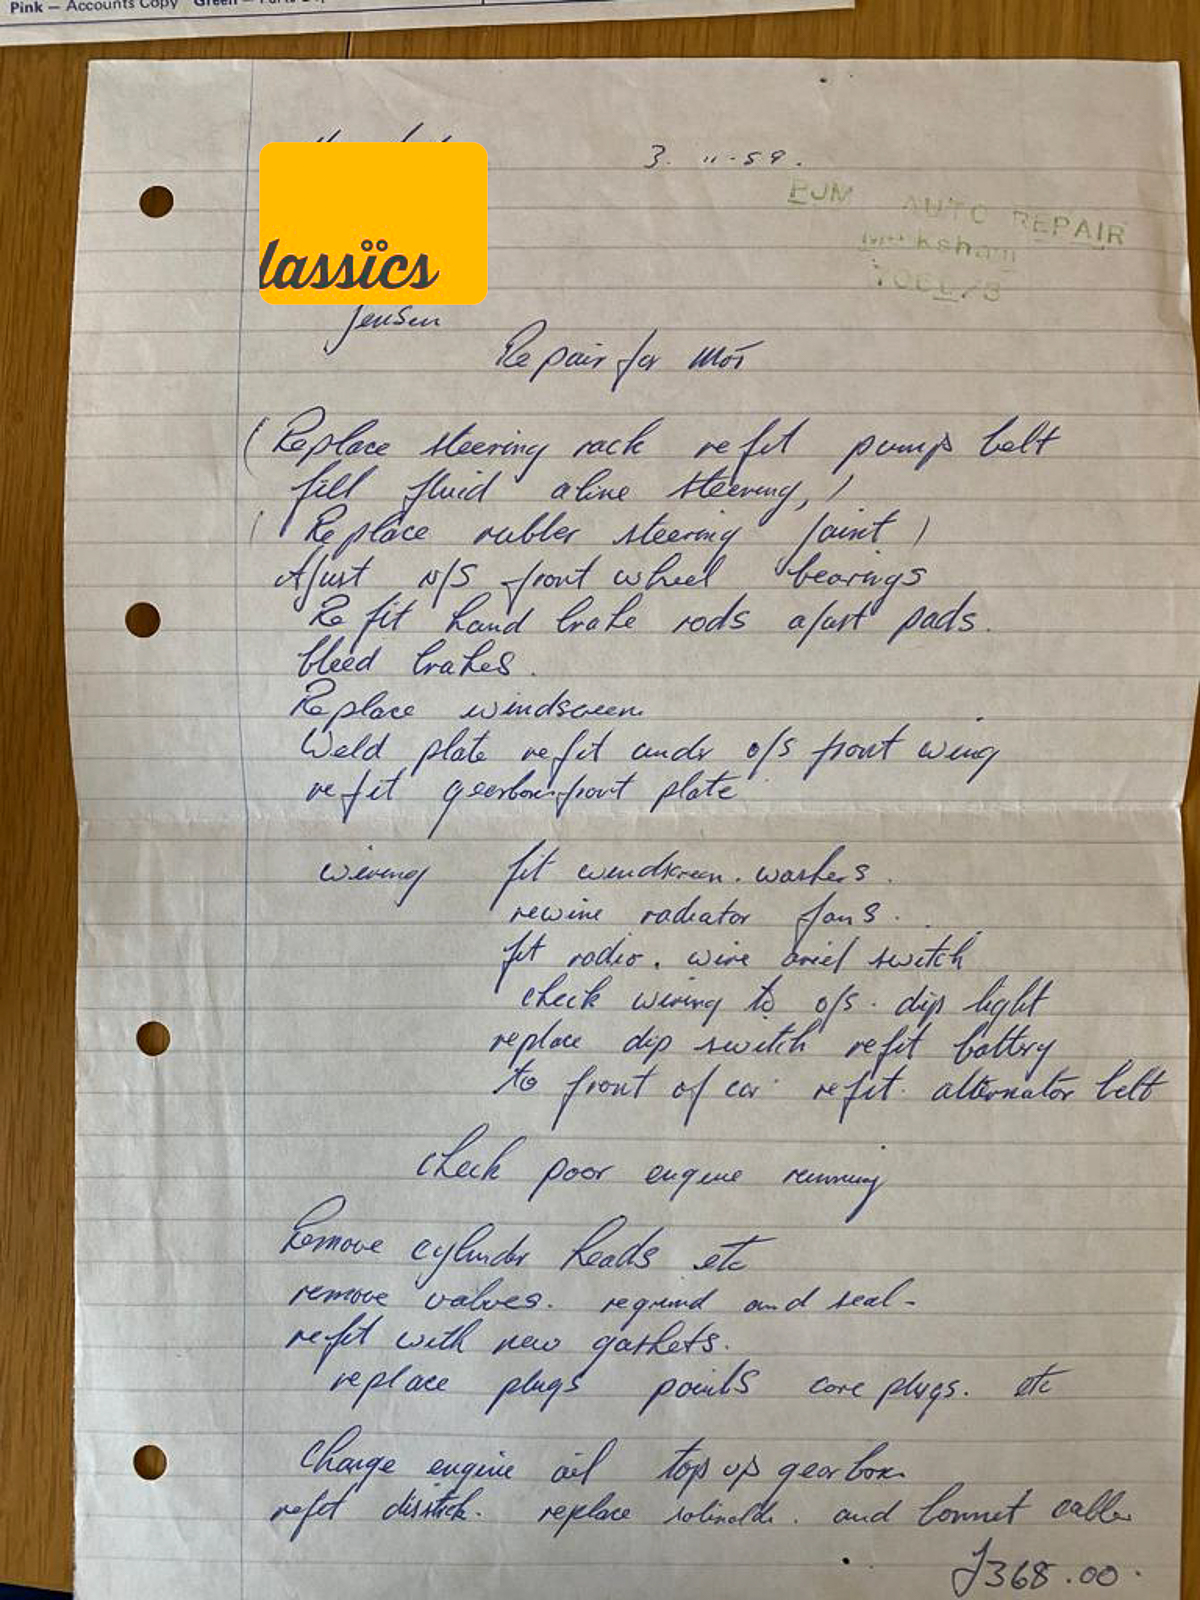 Pink — Accounts Copy Green —
3. 11-59.
PJM AUTO REPAIR
lassïcs
Jensen
Repair for MOT
(Replace steering rack refit pump belt
fill fluid aline steering,)
(Replace rubber steering joint)
Ajust N/S front wheel bearings
Refit hand brake rods ajust pads.
bleed brakes.
Replace windscreen
Weld plate refit under o/s front wing
refit gearbox front plate
wiring fit windscreen. washers.
rewire radiator fans.
fit radio. wire ariel switch
check wiring to o/s. dip light
replace dip switch refit battery
to front of car refit. alternator belt
check poor engine running
Remove cylinder heads etc
remove valves. regrind and seal-
refit with new gaskets.
replace plugs points core plugs. etc
Change engine oil top up gearbox
refit dipstick. replace and bonnet cable
£368.00.